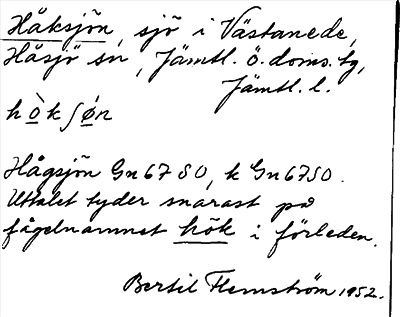 Håksjön, sjö i Västanede,
Håsjö sn, Jämtl. Ö. doms. tg,
Jämtl. l.
hò̲kʃǿ̲n
Hågsjön Gn 67 SO, k Gn 67 SO.
Uttalet tyder snarast på
fågelnamnet hök i förleden.
Bertil Flemström 1952.